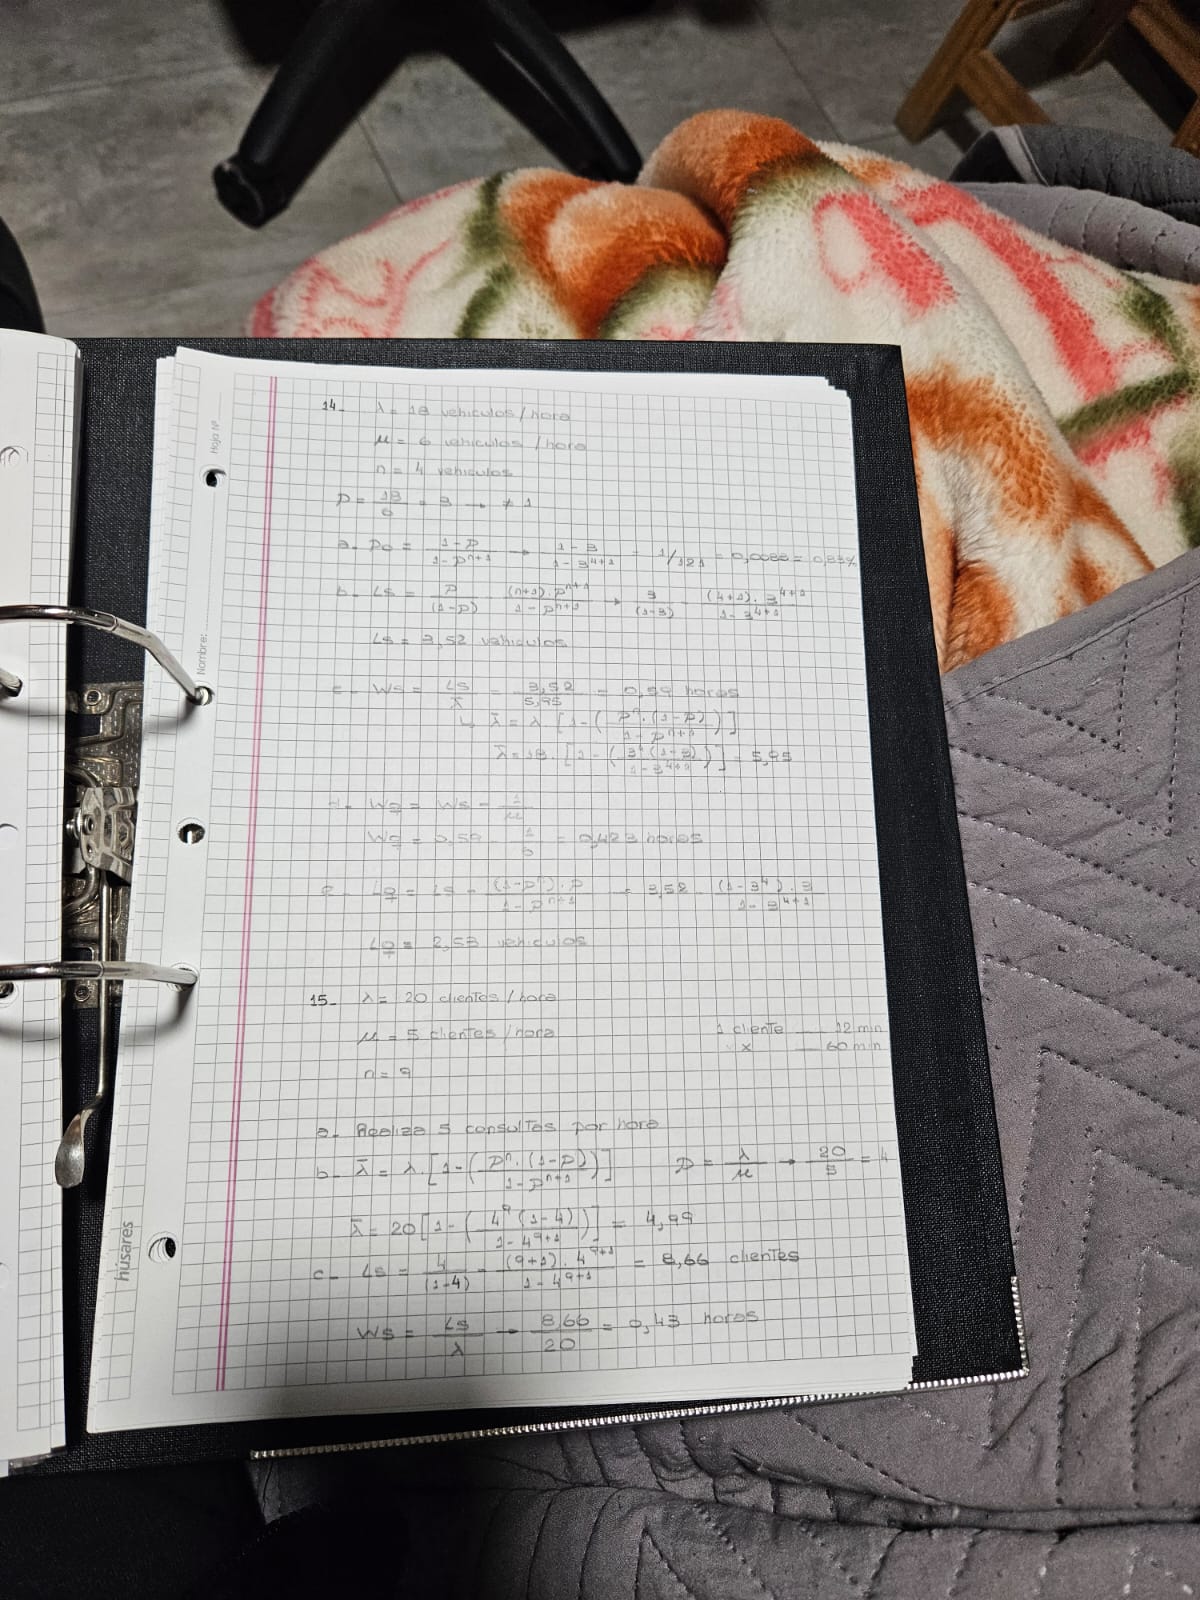 Hoja Nº
Nombre:
húsares
14- λ = 18 vehiculos/hora
μ = 6 vehiculos/hora
n = 4 vehiculos
P = 18/6 = 3 → ≠ 1
a- Po = (1-P)/(1-P^(n+1)) → (1-3)/(1-3^(4+1)) = 1/121 = 0,0088 = 0,83%
b- Ls = P/(1-P) - ((n+1).P^(n+1))/(1-P^(n+1)) → 3/(1-3) - ((4+1).3^(4+1))/(1-3^(4+1))
Ls = 3,52 vehiculos
c- Ws = Ls/λ̄ = 3,52/5,95 = 0,59 horas
↳ λ̄ = λ [1-(P^n.(1-P)/(1-P^(n+1)))]
λ̄ = 18.[1-(3^4.(1-3)/(1-3^(4+1)))] = 5,95
d- Wq = Ws - 1/μ
Wq = 0,59 - 1/6 = 0,423 horas
e- Lq = Ls - ((1-P^n).P)/(1-P^(n+1)) = 3,52 - ((1-3^4).3)/(1-3^(4+1))
Lq = 2,53 vehiculos
15- λ = 20 clientes/hora
μ = 5 clientes/hora 1 cliente — 12 min
x — 60 min
n = 9
a- Realiza 5 consultas por hora
b- λ̄ = λ.[1-(P^n.(1-P)/(1-P^(n+1)))] P = λ/μ → 20/5 = 4
λ̄ = 20[1-(4^9(1-4)/(1-4^(9+1)))] = 4,99
c- Ls = 4/(1-4) - ((9+1).4^(9+1))/(1-4^(9+1)) = 8,66 clientes
Ws = Ls/λ → 8,66/20 = 0,43 horas